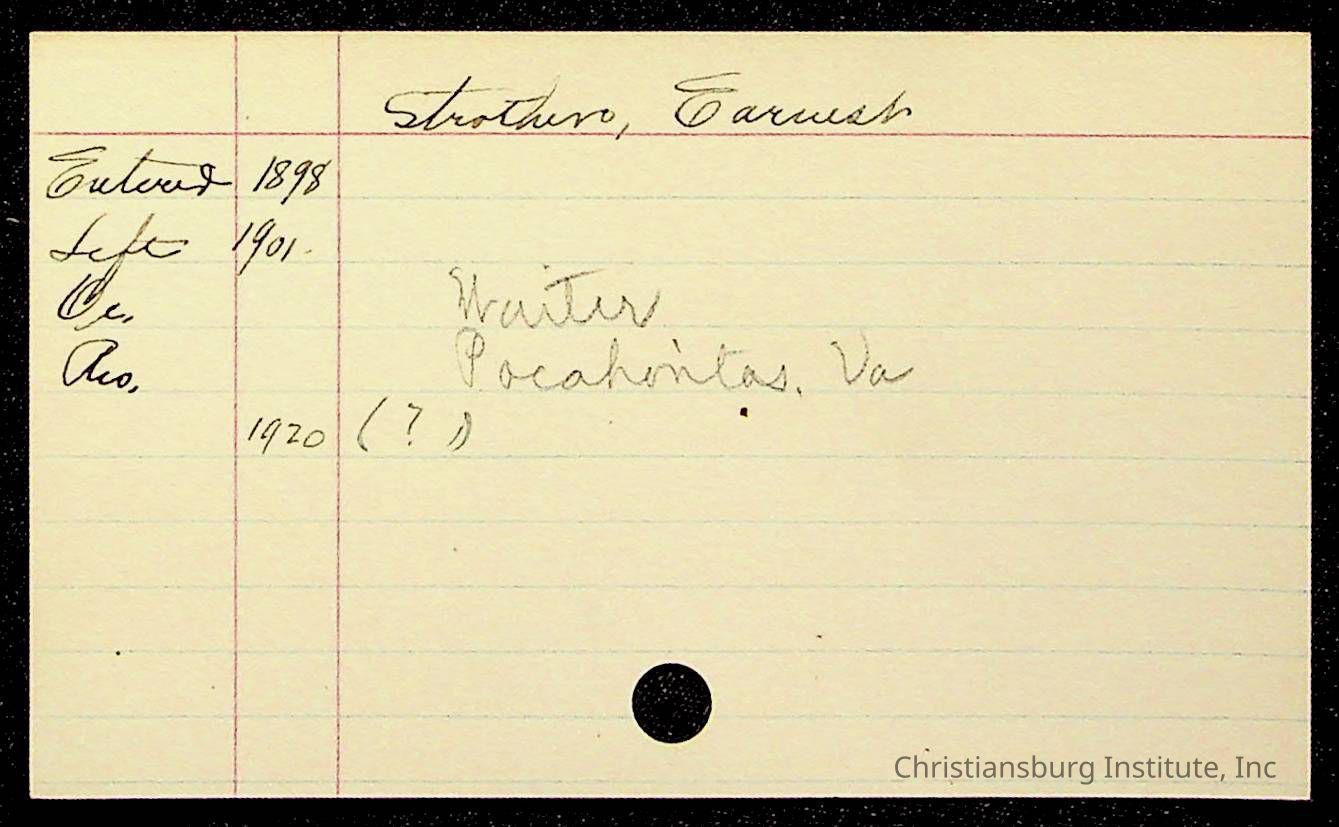 Strothers, Earnest
Entered 1898
Left 1901.
Oc. Waiter
Res. Pocahontas, Va
1920 (?)
Christiansburg Institute, Inc